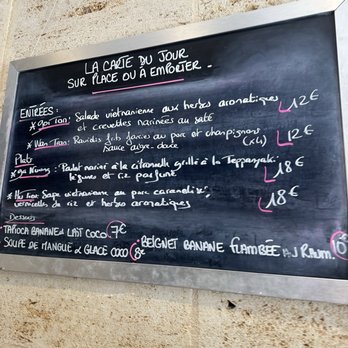 LA CARTE DU JOUR
SUR PLACE OU À EMPORTER.
ENTRÉES:
Salade vietnamienne aux herbes aromatiques 12€
et crevettes marinées au saté
Wan Tan: Raviolis frits farcis au porc et champignons 12€
sauce aigre-douce (x4)
Plats
Poulet mariné à la citronnelle grillé à la Teppanyaki 18€
légumes et riz parfumé
Soupe vietnamienne au porc caramélisé, 18€
vermicelles de riz et herbes aromatiques
Desserts
TAPIOCA BANANE & LAIT COCO 7€
SOUPE DE MANGUE & GLACE COCO 8€
BEIGNET BANANE FLAMBÉE AU RHUM. 10€